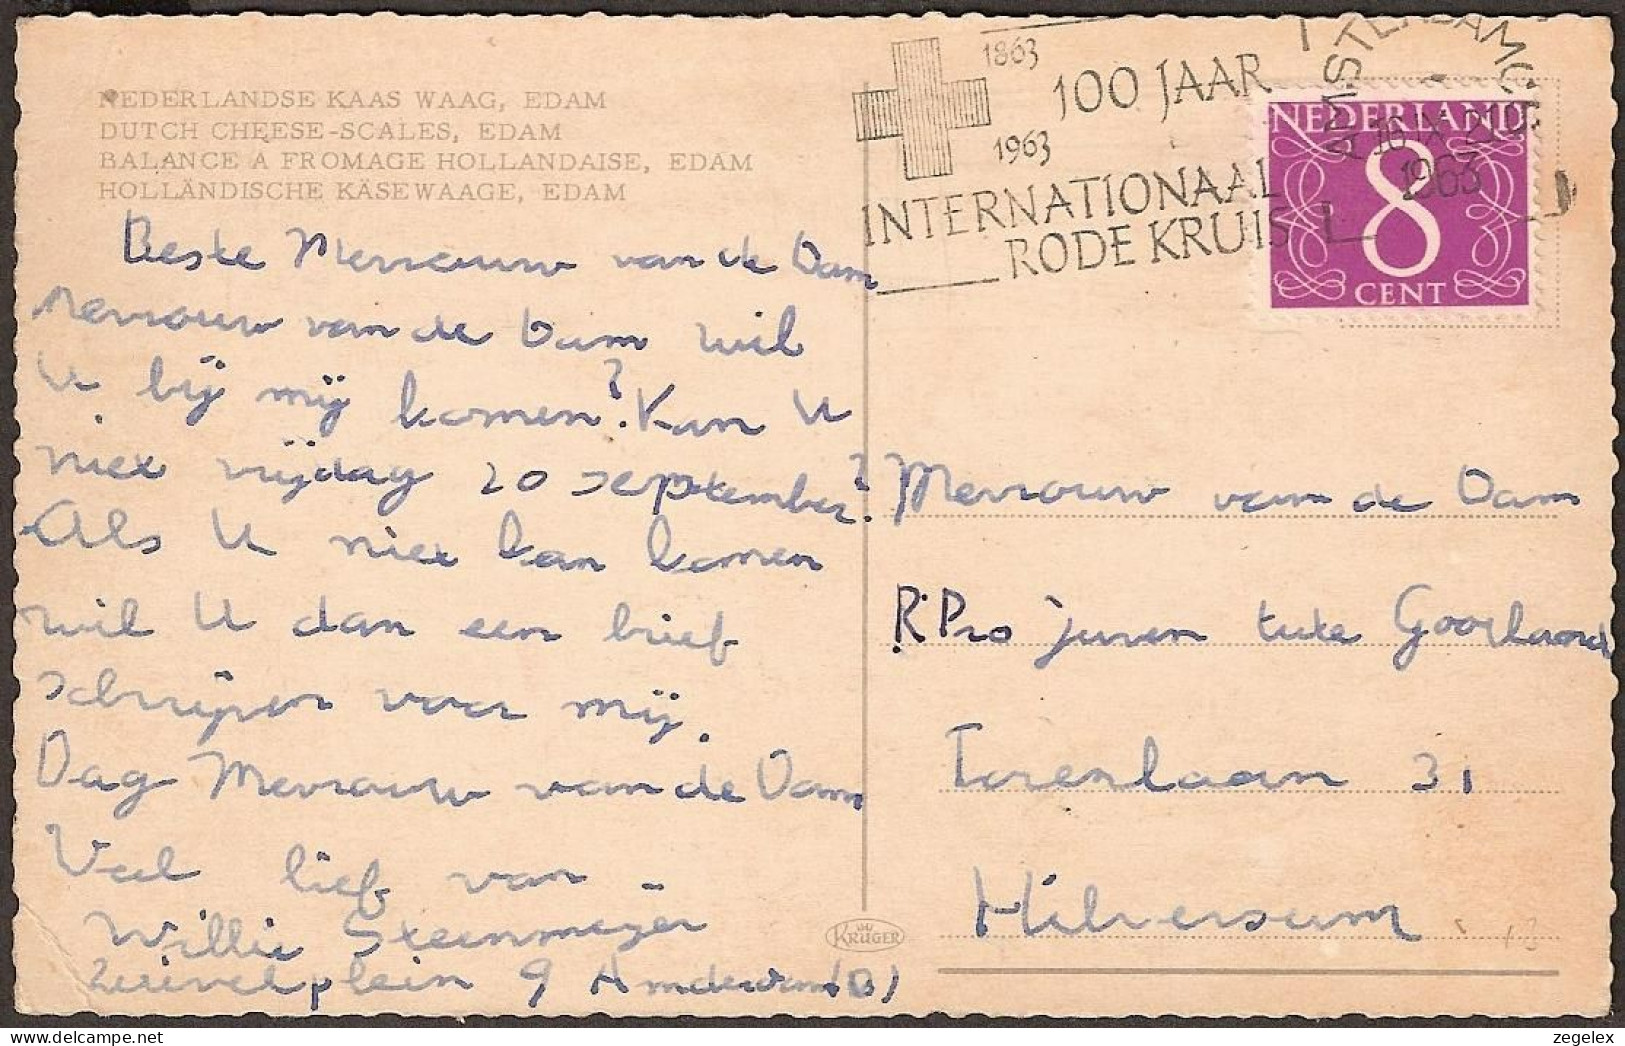 NEDERLANDSE KAAS WAAG, EDAM
DUTCH CHEESE-SCALES, EDAM
BALANCE A FROMAGE HOLLANDAISE, EDAM
HOLLÄNDISCHE KÄSEWAAGE, EDAM
1863
1963
100 JAAR
INTERNATIONAAL
RODE KRUIS
16 IX
1963
NEDERLAND
8
CENT
Beste Mevrouw van de Dam
Mevrouw van de Dam wil
U bij mij komen? Kan U
niet vrijdag 20 September?
Als U niet kan komen
wil U dan een brief
schrijven voor mij.
Dag Mevrouw van de Dam
Veel lief van
Willie Steenmeijer
Zuivelplein 9 Amderdam (B)
KRÜGER
Mevrouw van de Dam
R.Pro juven tute Goorland
Torenlaan 31
Hilversum
13
zegelex